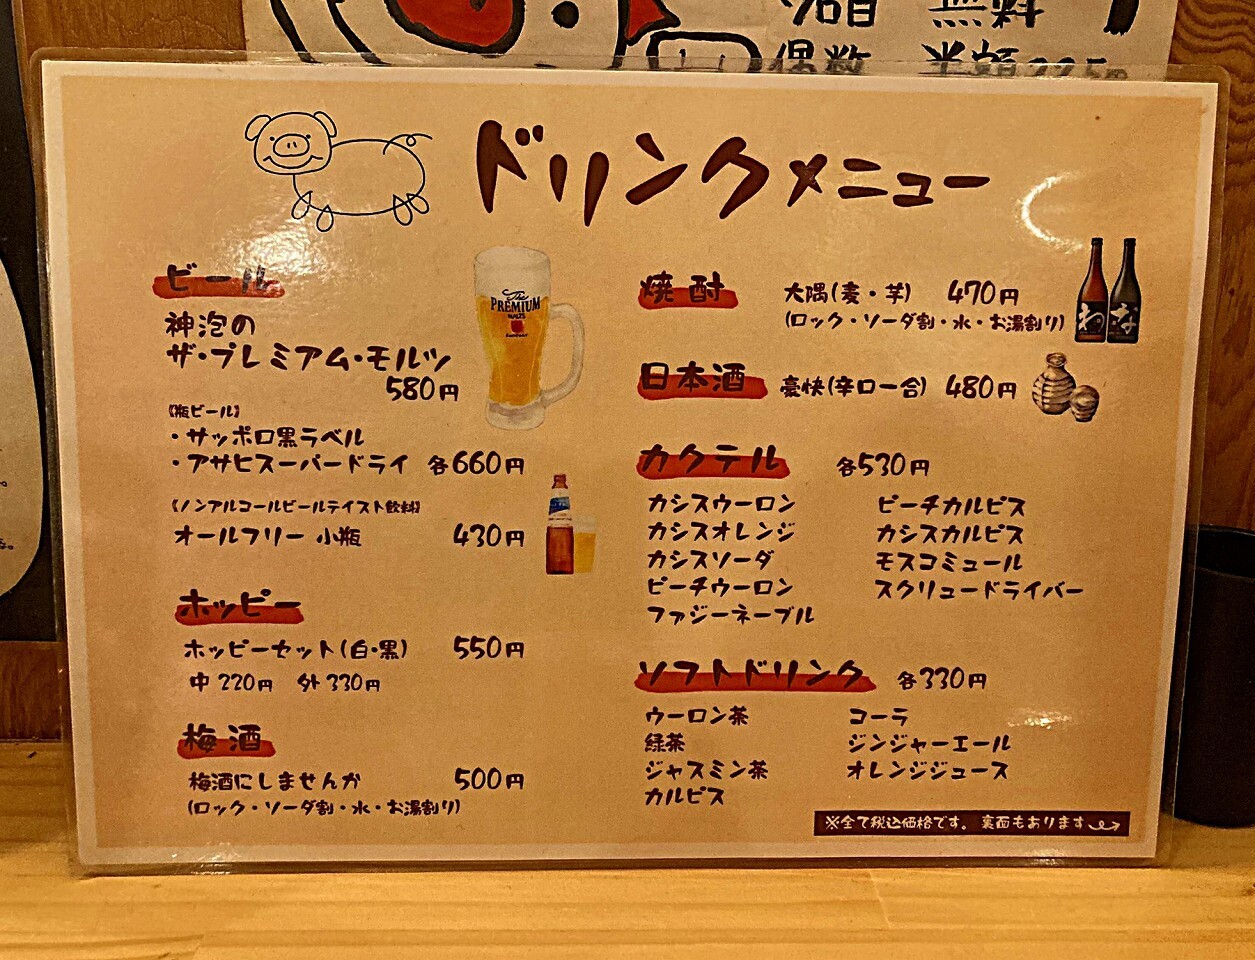 偶数
半額
ドリンクメニュー
ビール
神泡の
ザ・プレミアム・モルツ
580円
The
PREMIUM
MALT'S
SUNTORY
《瓶ビール》
・サッポロ黒ラベル
・アサヒスーパードライ 各660円
《ノンアルコールビールテイスト飲料》
オールフリー 小瓶 430円
ホッピー
ホッピーセット(白・黒) 550円
中220円 外330円
梅酒
梅酒にしませんか 500円
(ロック・ソーダ割・水・お湯割り)
焼酎 大隅(麦・芋) 470円
(ロック・ソーダ割・水・お湯割り)
日本酒 豪快(辛口一合) 480円
カクテル 各530円
カシスウーロン ピーチカルピス
カシスオレンジ カシスカルピス
カシスソーダ モスコミュール
ピーチウーロン スクリュードライバー
ファジーネーブル
ソフトドリンク 各330円
ウーロン茶 コーラ
緑茶 ジンジャーエール
ジャスミン茶 オレンジジュース
カルピス
※全て税込価格です。裏面もあります